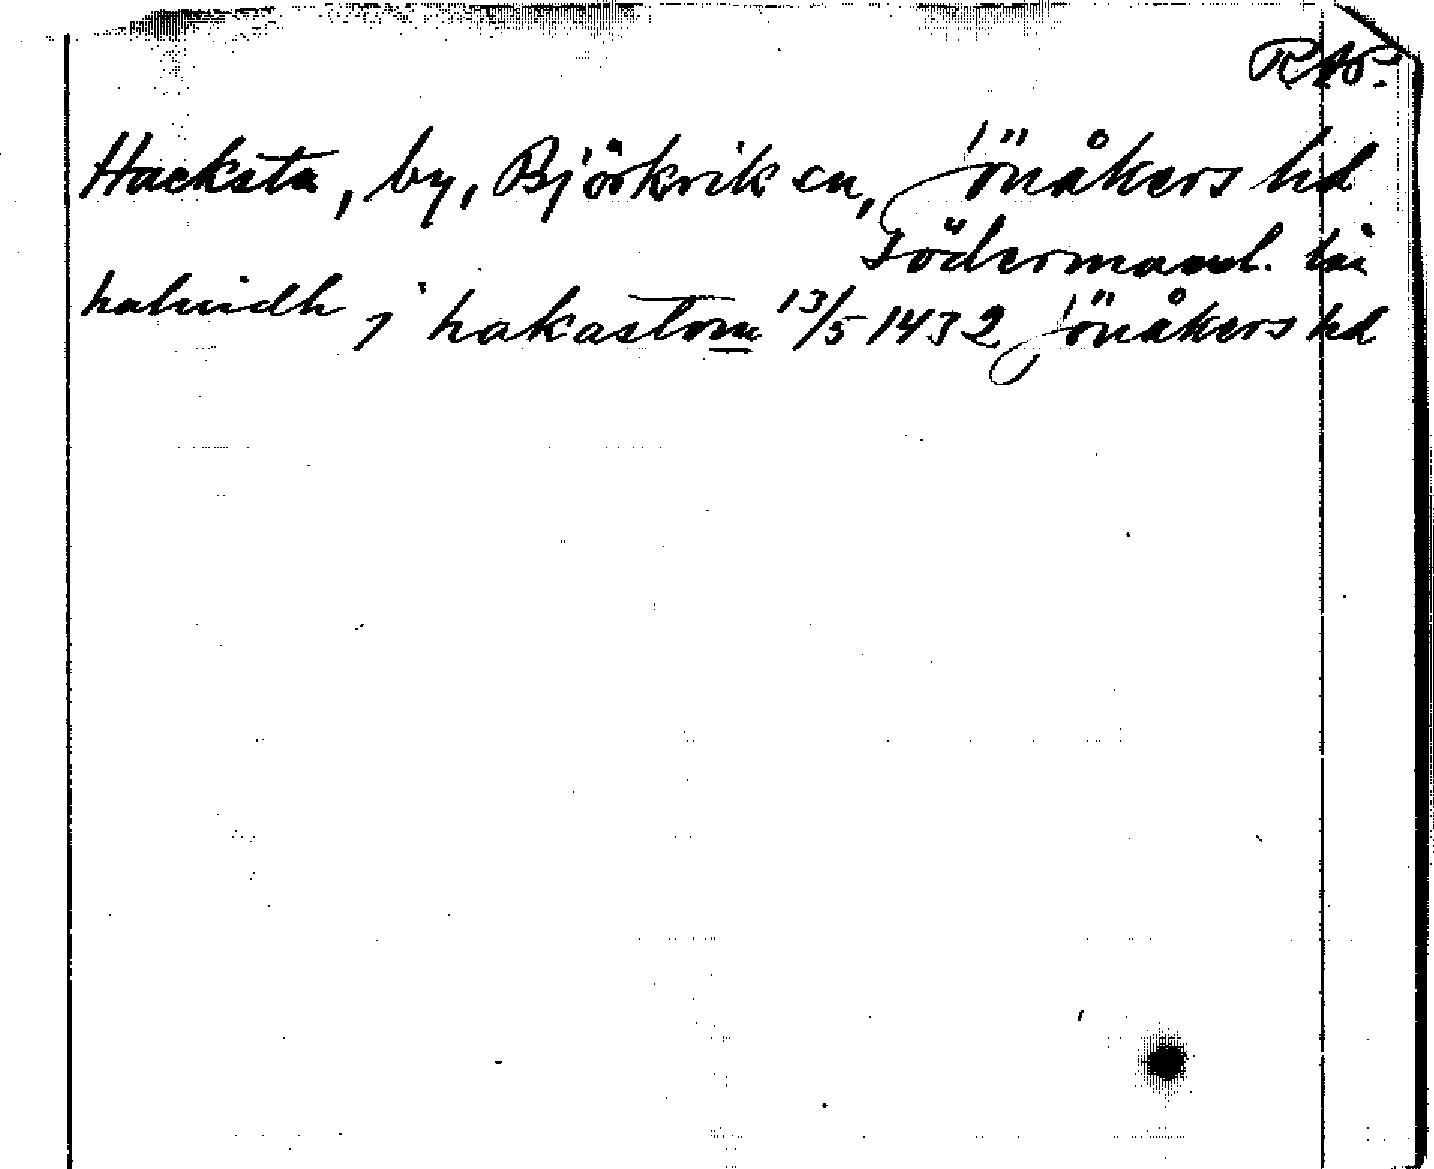 RAp.
Hacksta, by, Björkvik sn, Jönåkers hd
Södermanl. län
haluidh j hakastom 13/5 1432 Jönåkers hd